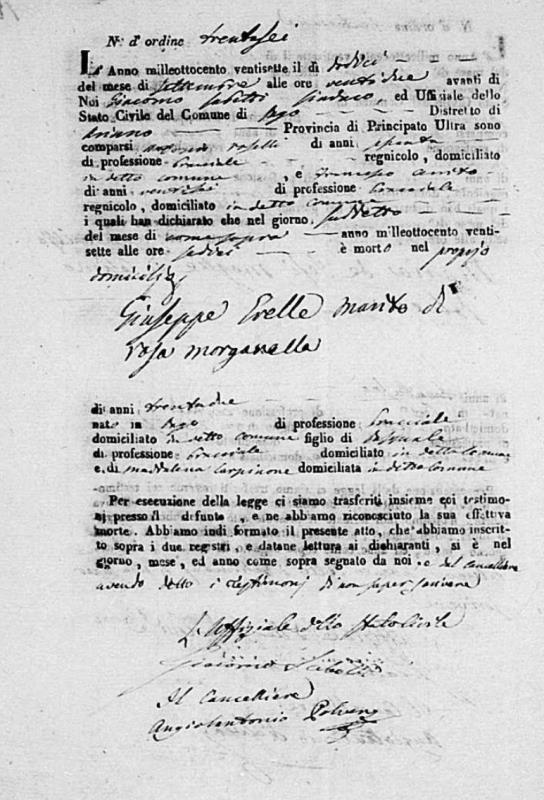 N.° d'ordine trentasei
L' Anno milleottocento ventisette il dì
del mese di settembre alle ore ventidue avanti di
Noi Giacomo sindaco, ed Uffiziale dello
Stato Civile del Comune di Distretto di
Ariano Provincia di Principato Ultra sono
comparsi antonio di anni
di professione bracciale regnicolo, domiciliato
in detto comune , e Francesco
di anni di professione bracciale
regnicolo, domiciliato in detto comune
i quali han dichiarato che nel giorno
del mese di come sopra anno milleottocento venti-
sette alle ore sedici è morto nel proprio
domicilio
Giuseppe Erelle marito di
rosa morganella
di anni trentadue
nato in di professione bracciale
domiciliato in detto comune figlio di Pasquale
di professione bracciale domiciliato in detto Comune
e di maddalena carpinone domiciliata in ditto Comune
Per esecuzione della legge ci siamo trasferiti insieme coi testimo-
nj presso il defunto , e ne abbiamo riconosciuto la sua effettiva
morte. Abbiamo indi formato il presente atto, che abbiamo inscrit-
to sopra i due registri, e datane lettura ai dichiaranti, si è nel
giorno, mese, ed anno come sopra segnato da noi e del cancelliere
avendo detto i testimonj di non saper scrivere
L'Uffiziale dello Stato Civile
Giacomo
Il Cancelliere
Angiolantonio